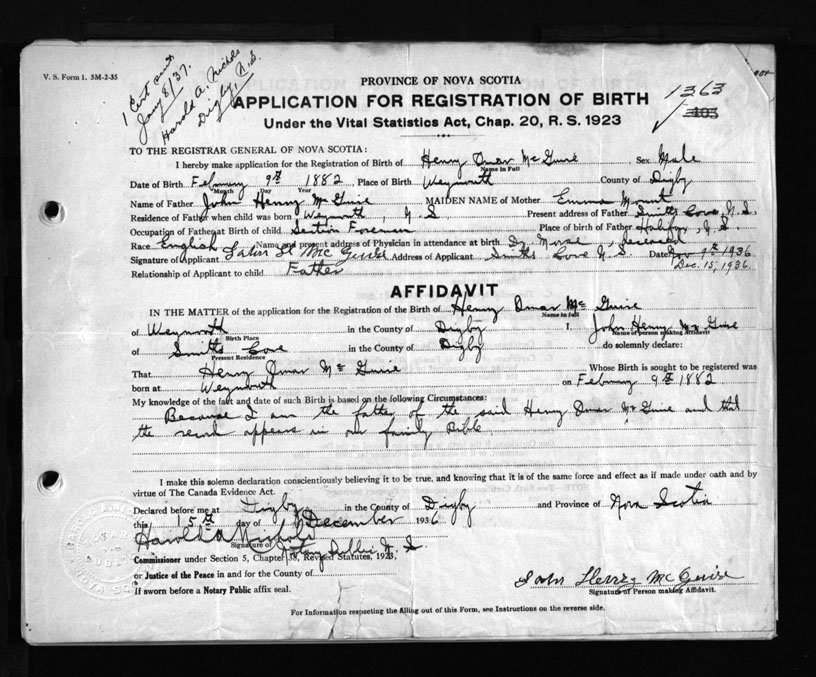 V. S. Form 1. 5M-2-35
1 Cert sent
Jany 8/37.
Harold A. Nichols
Digby, N.S.
PROVINCE OF NOVA SCOTIA
APPLICATION FOR REGISTRATION OF BIRTH
Under the Vital Statistics Act, Chap. 20, R. S. 1923
1363
103
TO THE REGISTRAR GENERAL OF NOVA SCOTIA:
I hereby make application for the Registration of Birth of Henry Omar McGuire Sex Male
Name in Full
Date of Birth February 9th 1882 Place of Birth Weymouth County of Digby
Month Day Year
Name of Father John Henry McGuire MAIDEN NAME of Mother Emma Mount
Residence of Father when child was born Weymouth, N.S. Present address of Father Smiths Cove, N.S.
Occupation of Father at Birth of child Section Foreman Place of Birth of Father Halifax, N.S.
Race English Name and present address of Physician in attendance at birth Dr Morse, deceased
Signature of Applicant John H McGuire Address of Applicant Smiths Cove N.S. Date Nov 9th 1936
Dec. 15, 1936
Relationship of Applicant to child Father
AFFIDAVIT
IN THE MATTER of the application for the Registration of the Birth of Henry Omar McGuire
Name in full
of Weymouth in the County of Digby I. John Henry McGuire
Birth Place Name of person making Affidavit
of Smiths Cove in the County of Digby do solemnly declare:
Present Residence
That Henry Omar McGuire Whose Birth is sought to be registered was
born at Weymouth on February 9th 1882
My knowledge of the fact and date of such Birth is based on the following Circumstances:
Because I am the father of the said Henry Omar McGuire and that
the record appears in our family Bible
I make this solemn declaration conscientiously believing it to be true, and knowing that it is of the same force and effect as if made under oath and by
virtue of The Canada Evidence Act.
Declared before me at Digby in the County of Digby and Province of Nova Scotia
this 15th day of December 1936
Harold A Nichols
Signature of Notary Public N.S.
Commissioner under Section 5, Chapter 38, Revised Statutes, 1923,
or Justice of the Peace in and for the County of
If sworn before a Notary Public affix seal.
John Henry McGuire
Signature of Person making Affidavit.
For Information respecting the filling out of this Form, see Instructions on the reverse side.